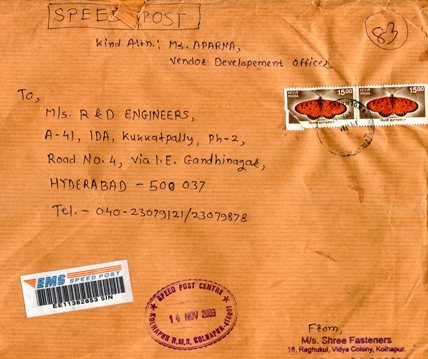 SPEED POST
83
Kind Attn: Ms. APARNA,
Vendor Developement Officer
To,
M/s. R & D ENGINEERS,
A-41, IDA, Kukkatpally, Ph-2,
Road No. 4, Via I.E. Gandhinagar,
HYDERABAD - 500 037
Tel. - 040-23079121/23079878
1500
1500
EMS SPEED POST
EE11382853 5IN
SPEED POST CENTRE
14 NOV 2003
KOLHAPUR R.M.S. KOLHAPUR
From,
M/s. Shree Fasteners
16, Raghukul, Vidya Colony, Kolhapur.